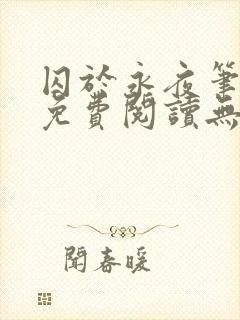 囚於永夜筆
免費閱讀無
聞春暖